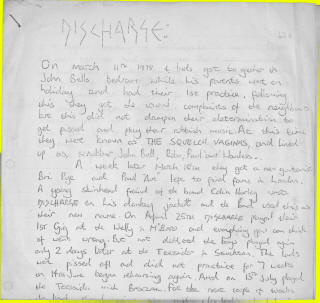 DISCHARGE:
On March 11th 1978 4 lads got together in
John Bulls bedroom whilst his parents went on
holiday and had their 1st practice, following
this they got the usual complaints off the neighbours
but this did not dampen their determination to
get pissed and play their rubbish music. At this time
they were known as THE SQUELCH VAGINAS, and lined
up as, John Bull, Paul and
A week later March 18th they got a new guitarist
Bri Pye and Paul left to find fame in London
A young skinhead friend of the band Colin Hurley wrote
DISCHARGE on his donkey jacket and the band used this as
their new name. On April 25th DISCHARGE played their
1st Gig at the Welly in M'Bro and everything you can think
of went wrong. But not defeated the Boys played again
only 2 days later at the Teesside The lads
were pissed off and did not practice for 7 weeks
on 14th June began rehearsing again. And on 15th July played
the Teesside with For the next couple of weeks